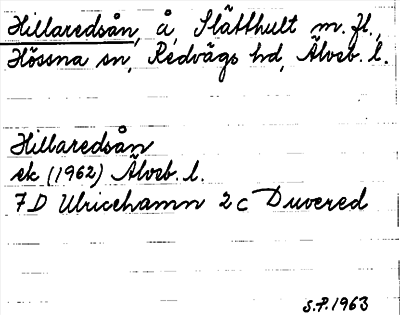 Hillaredsån, å, Slätthult m. fl.,
Hössna sn, Redvägs hd, Älvsb. l.
Hillaredsån
ek (1962) Älvsb. l.
7D Ulricehamn 2c Duvered
S.P. 1963